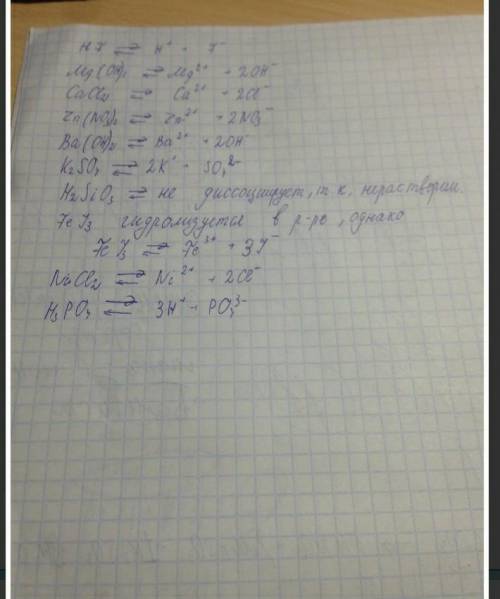 HJ ⇌ H⁺ + J⁻
Mg(OH)₂ ⇌ Mg²⁺ + 2OH⁻
CaCl₂ ⇌ Ca²⁺ + 2Cl⁻
Zn(NO₃)₂ ⇌ Zn²⁺ + 2NO₃⁻
Ba(OH)₂ ⇌ Ba²⁺ + 2OH⁻
K₂SO₄ ⇌ 2K⁺ + SO₄²⁻
H₂SiO₃ ⇌ не диссоциирует, т.к. нерастворим.
FeJ₃ гидролизуется в р-ре, однако
FeJ₃ ⇌ Fe³⁺ + 3J⁻
NiCl₂ ⇌ Ni²⁺ + 2Cl⁻
H₃PO₄ ⇌ 3H⁺ + PO₄³⁻